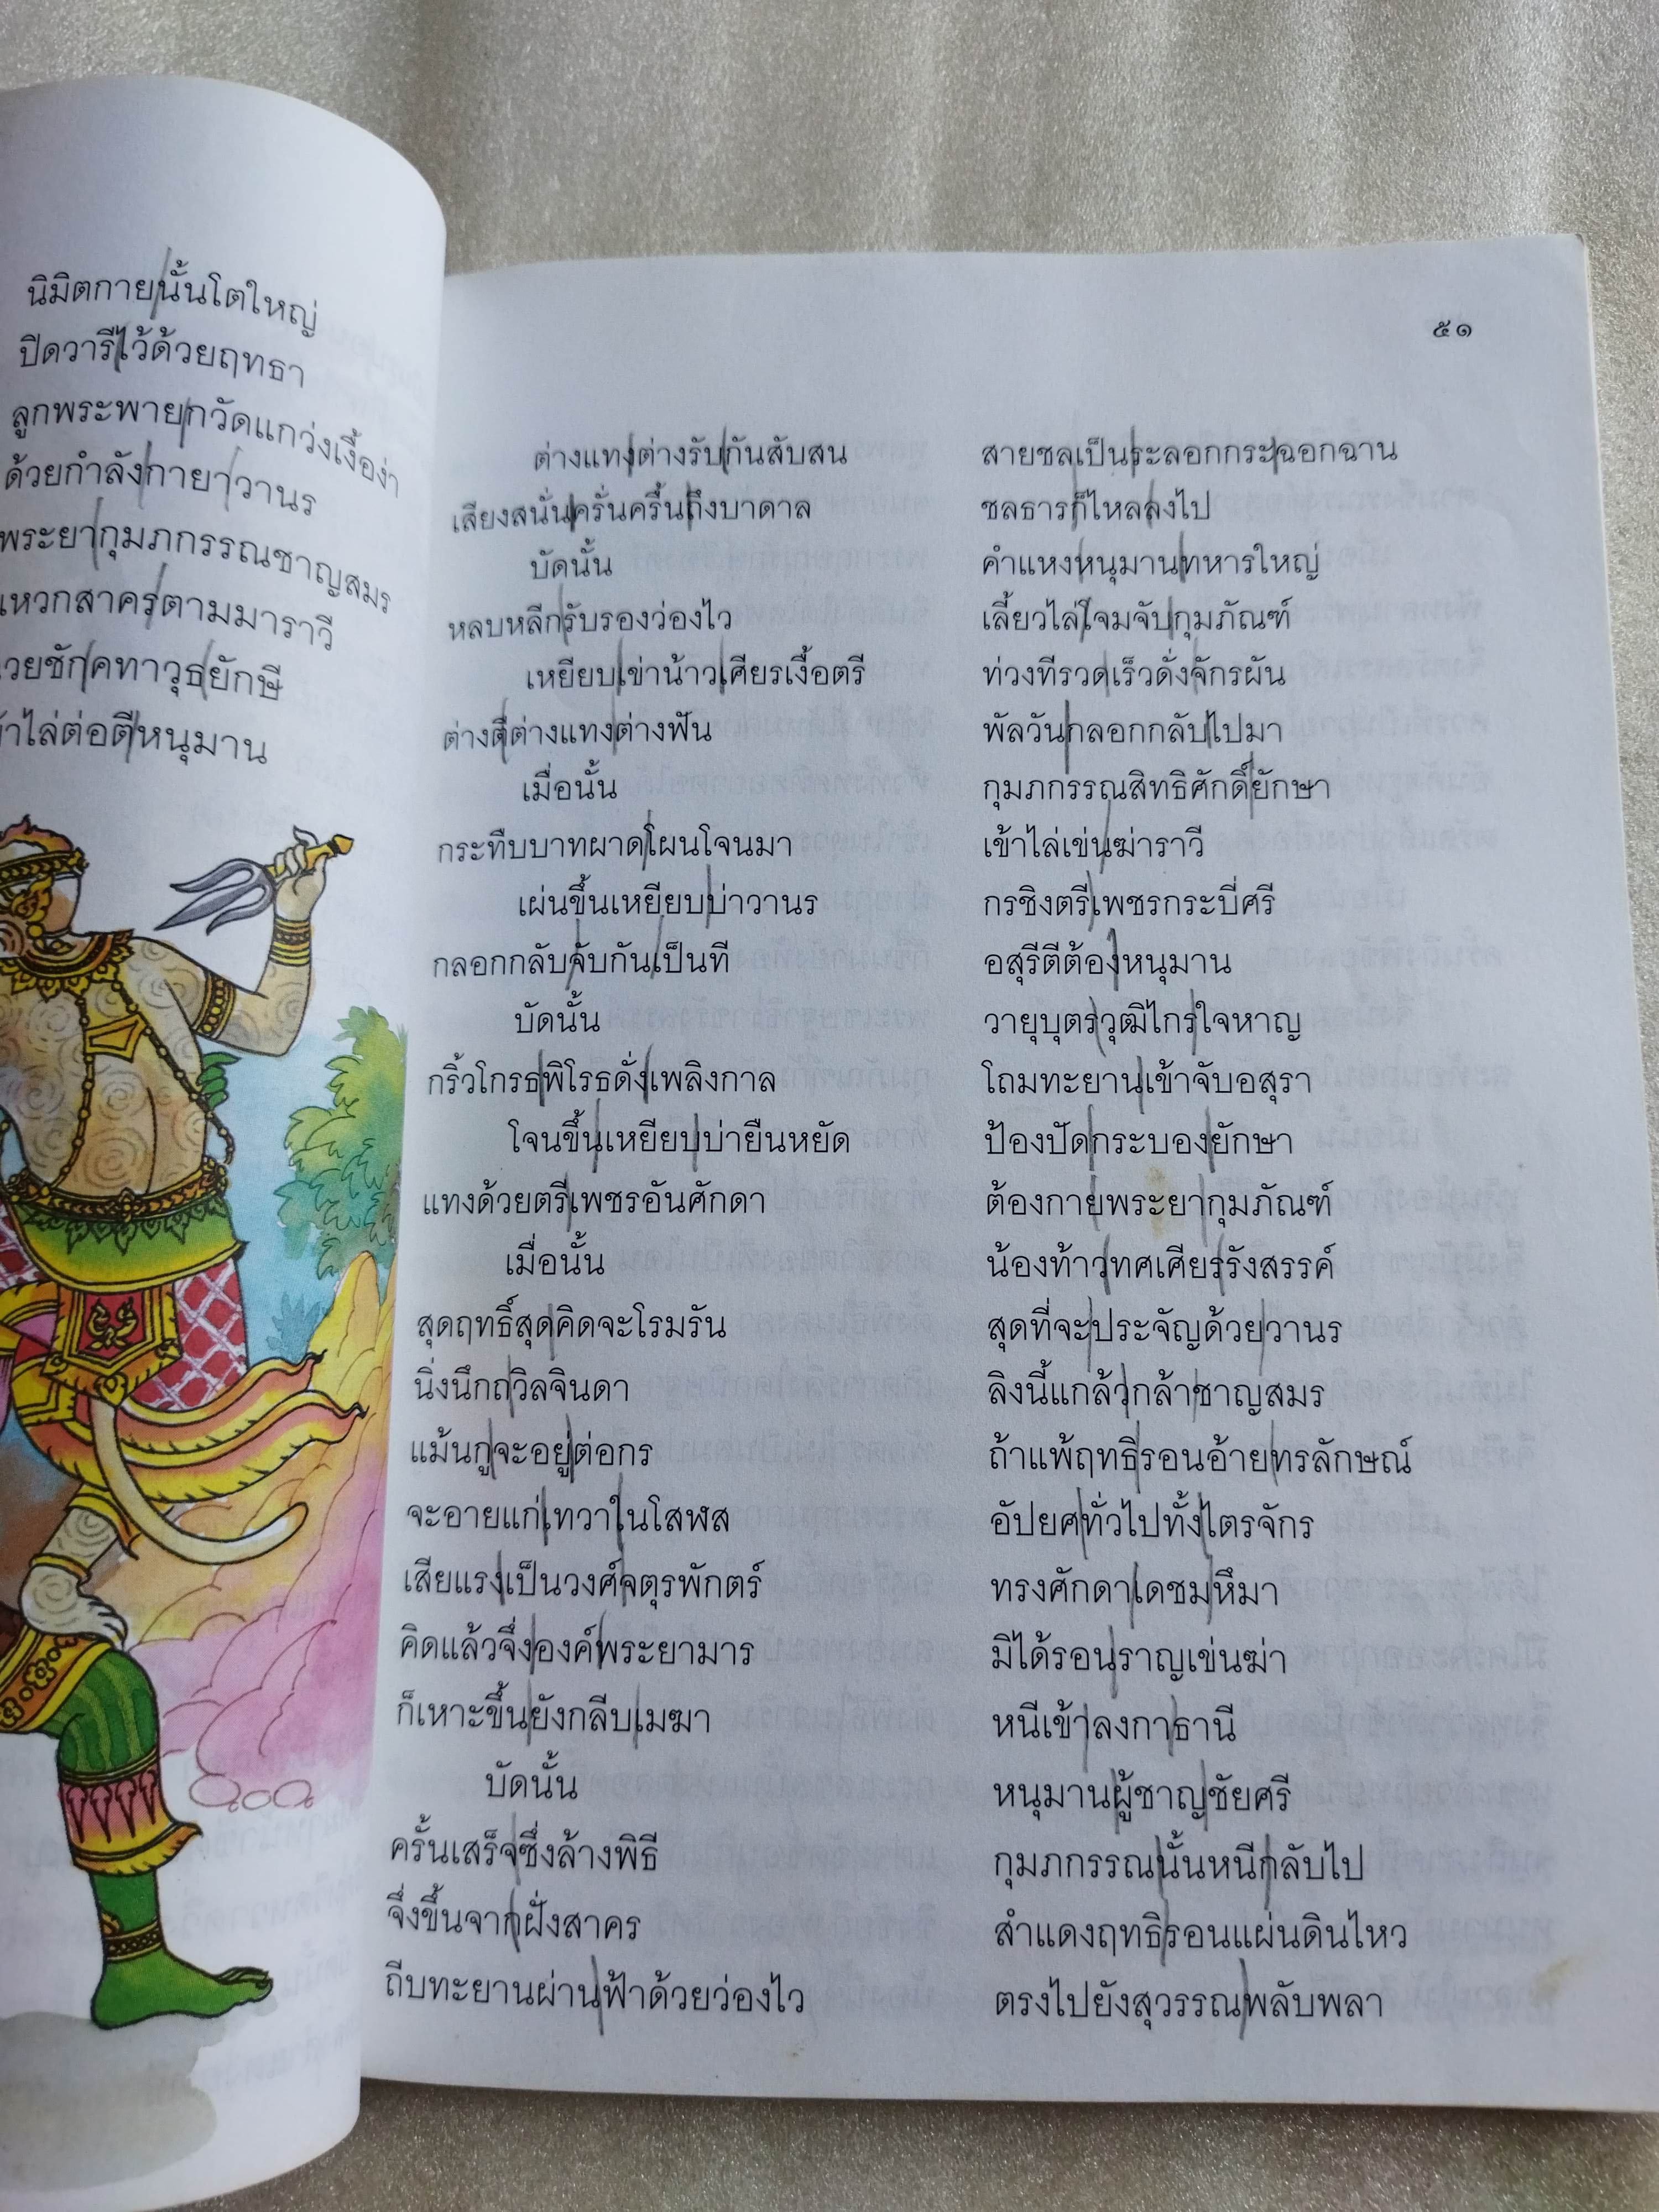 นิมิตกายนั้นโตใหญ่
ปิดวารีไว้ด้วยฤทธา
ลูกพระพายกวัดแกว่งเงื้อง่า
ด้วยกำลังกายาวานร
พระยากุมภกรรณชาญสมร
แหวกสาครตามมาราวี
วยชักคทาวุธยักษี
ไล่ต่อตีหนุมาน
๕๑
ต่างแทงต่างรับกันสับสน สายชลเป็นระลอกกระฉอกฉาน
เสียงสนั่นครั่นครื้นถึงบาดาล ชลธารก็ไหลลงไป
บัดนั้น คำแหงหนุมานทหารใหญ่
หลบหลีกรับรองว่องไว เลี้ยวไล่โจมจับกุมภัณฑ์
เหยียบเข่าน้าวเศียรเงื้อตรี ท่วงทีรวดเร็วดั่งจักรผัน
ต่างตีต่างแทงต่างฟัน พัลวันกลอกกลับไปมา
เมื่อนั้น กุมภกรรณสิทธิศักดิ์ยักษา
กระทืบบาทผาดโผนโจนมา เข้าไล่เข่นฆ่าราวี
เผ่นขึ้นเหยียบบ่าวานร กรชิงตรีเพชรกระบี่ศรี
กลอกกลับจับกันเป็นที อสุรีตีต้องหนุมาน
บัดนั้น วายุบุตรวุฒิไกรใจหาญ
กริ้วโกรธพิโรธดั่งเพลิงกาล โถมทะยานเข้าจับอสุรา
โจนขึ้นเหยียบบ่ายืนหยัด ป้องปัดกระบองยักษา
แทงด้วยตรีเพชรอันศักดา ต้องกายพระยากุมภัณฑ์
เมื่อนั้น น้องท้าวทศเศียรรังสรรค์
สุดฤทธิ์สุดคิดจะโรมรัน สุดที่จะประจัญด้วยวานร
นิ่งนึกถวิลจินดา ลิงนี้แกล้วกล้าชาญสมร
แม้นกูจะอยู่ต่อกร ถ้าแพ้ฤทธิรอนอ้ายทรลักษณ์
จะอายแก่เทวาในโสฬส อัปยศทั่วไปทั้งไตรจักร
เสียแรงเป็นวงศ์จตุรพักตร์ ทรงศักดาเดชมหึมา
คิดแล้วจึ่งองค์พระยามาร มิได้รอนราญเข่นฆ่า
ก็เหาะขึ้นยังกลีบเมฆา หนีเข้าลงกาธานี
บัดนั้น หนุมานผู้ชาญชัยศรี
ครั้นเสร็จซึ่งล้างพิธี กุมภกรรณนั้นหนีกลับไป
จึ่งขึ้นจากฝั่งสาคร สำแดงฤทธิรอนแผ่นดินไหว
ถีบทะยานผ่านฟ้าด้วยว่องไว ตรงไปยังสุวรรณพลับพลา